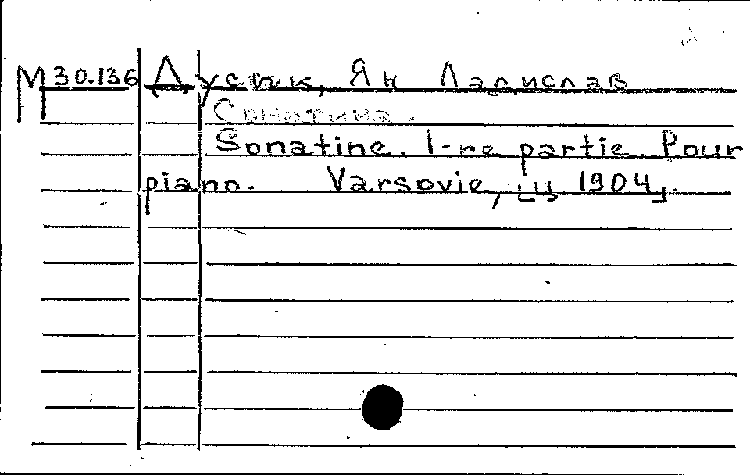 М 30.136 Дусик, Ян Ладислав
Сонатина.
Sonatine. I-re partie. Pour
piano. Varsovie, [ц 1904].